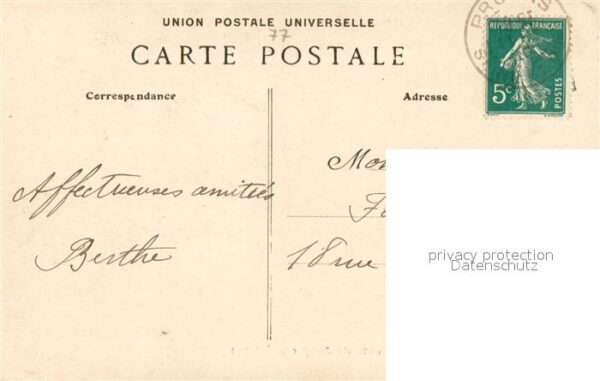 UNION POSTALE UNIVERSELLE
77
CARTE POSTALE
Correspondance
Adresse
REPUBLIQUE FRANÇAISE
5c
POSTES
Affectueuses amitiés
Berthe
18 rue
privacy protection
Datenschutz